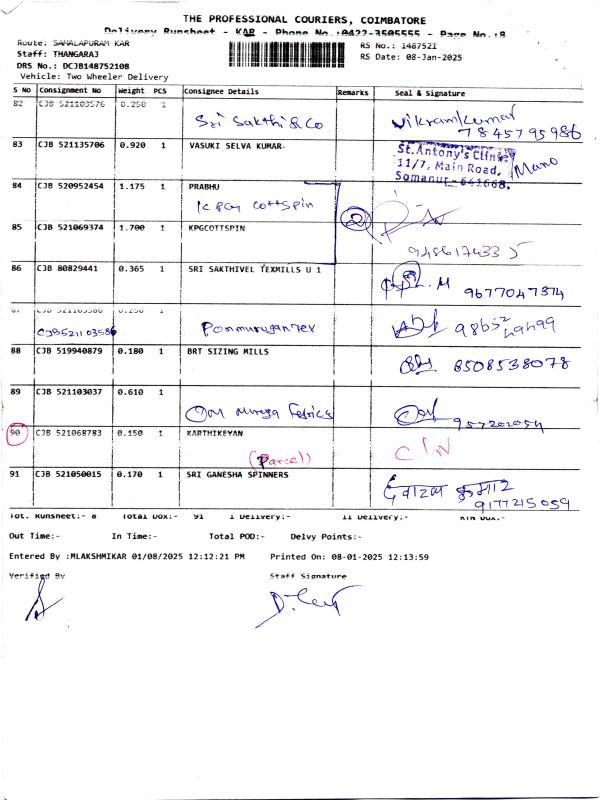 THE PROFESSIONAL COURIERS, COIMBATORE
Delivery Runsheet - KAR - Phone No.:0422-3505555 - Page No.:8
Route: SAMALAPURAM KAR
Staff: THANGARAJ
DRS No.: DCJB148752108
Vehicle: Two Wheeler Delivery
RS No.: 148752I
RS Date: 08-Jan-2025
S No Consignment No Weight PCS Consignee Details Remarks Seal & Signature
82 CJB 521103576 0.250 1
Sri Sakthi & Co Vikramkumar
7845795986
83 CJB 521135706 0.920 1 VASUKI SELVA KUMAR-
St. Antony's Clinic
11/7, Main Road,
Somanur - 641668.
Mano
84 CJB 520952454 1.175 1 PRABHU
KPG Cottspin
2
85 CJB 521069374 1.700 1 KPGCOTTSPIN
9486174335
86 CJB 80829441 0.365 1 SRI SAKTHIVEL TEXMILLS U 1
9677047374
87 CJB 521103586 0.250 1
CJB521103586 Ponmurugan Tex
88 CJB 519940879 0.180 1 BRT SIZING MILLS
8508538078
89 CJB 521103037 0.610 1
Om Muruga Febrics
90 CJB 521068783 0.150 1 KARTHIKEYAN
(Parcel)
91 CJB 521050015 0.170 1 SRI GANESHA SPINNERS
कुमार
9177215059
Tot. Runsheet:- 8 Total Dox:- 91 I Delivery:- II Delivery:- RTN Dox:-
Out Time:- In Time:- Total POD:- Delvy Points:-
Entered By :MLAKSHMIKAR 01/08/2025 12:12:21 PM Printed On: 08-01-2025 12:13:59
Verified By Staff Signature